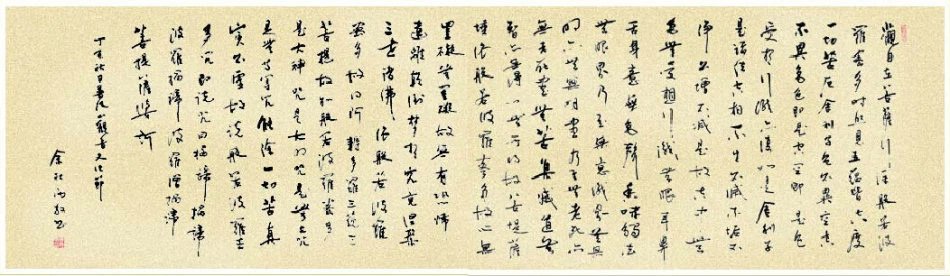 觀自在菩薩行深般若波
羅蜜多時照見五蘊皆空度
一切苦厄舍利子色不異空空
不異色色即是空空即是色
受想行識亦復如是舍利子
是諸法空相不生不滅不垢不
淨不增不減是故空中無
色無受想行識無眼耳鼻
舌身意無色聲香味觸法
無眼界乃至無意識界無無
明亦無無明盡乃至無老死亦
無老死盡無苦集滅道無
智亦無得以無所得故菩提薩
埵依般若波羅蜜多故心無
罣礙無罣礙故無有恐怖
遠離顛倒夢想究竟涅槃
三世諸佛依般若波羅
蜜多故得阿耨多羅三藐三
菩提故知般若波羅蜜多
是大神咒是大明咒是無上咒
是無等等咒能除一切苦真
實不虛故說般若波羅蜜
多咒即說咒曰揭諦揭諦
波羅揭諦波羅僧揭諦
菩提薩婆訶
丁亥秋日觀音文化節
余秋雨敬書